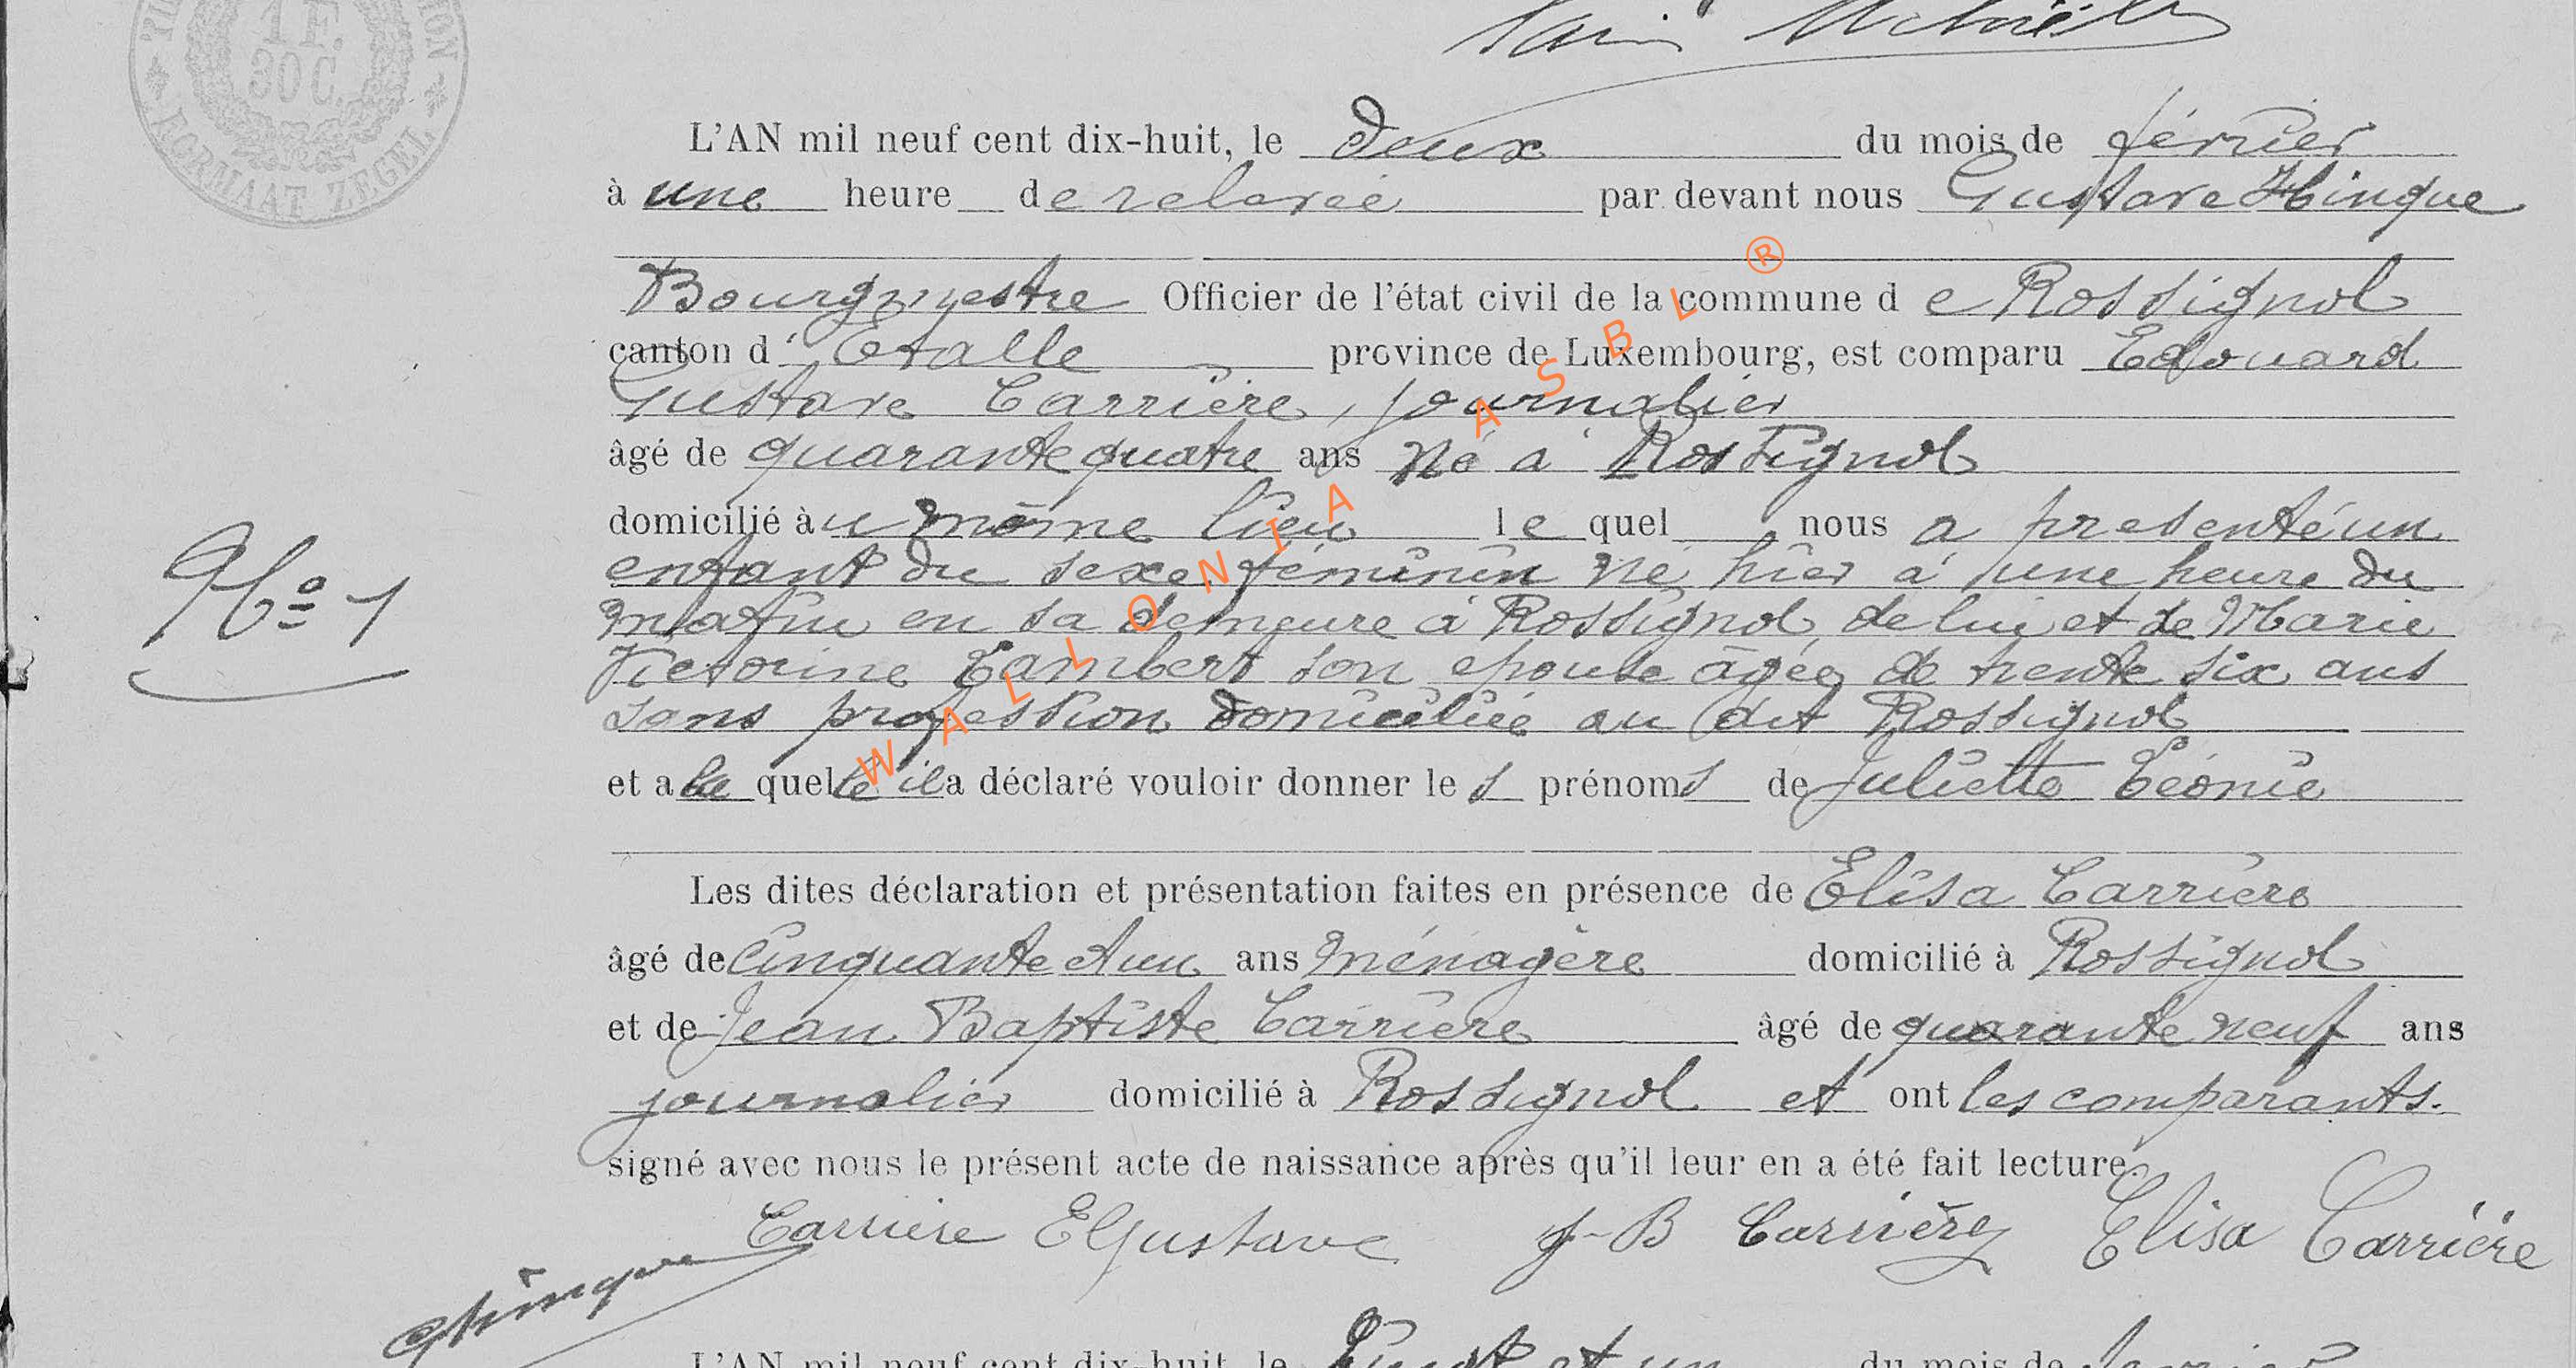 1 F.
30 C.
FORMAAT ZEGEL
L'AN mil neuf cent dix-huit, le deux du mois de février
à une heure de relevée par devant nous Gustave Hinque
Bourgmestre Officier de l'état civil de la commune de Rossignol
canton d'Etalle province de Luxembourg, est comparu Edouard
Gustave Carrière, journalier
âgé de quarante quatre ans né à Rossignol
domicilié au même lieu lequel nous a presenté un
enfant du sexe féminin né hier à une heure du
matin en sa demeure à Rossignol de lui et de Marie
Victorine Lambert son epouse âgée de trente six ans
sans profession domiciliée au dit Rossignol
et a laquelle il a déclaré vouloir donner les prénoms de Juliette Léonie
Les dites déclaration et présentation faites en présence de Elisa Carrière
âgé de cinquante et un ans ménagère domicilié à Rossignol
et de Jean Baptiste Carrière âgé de quarante neuf ans
journalier domicilié à Rossignol et ont les comparants.
signé avec nous le présent acte de naissance après qu'il leur en a été fait lecture.
No 1
Carriere E Gustave J-B Carrière Elisa Carrière
GHinque
L'AN mil neuf cent dix-huit, le Vingt et un du mois de
WALLONIA ASBL ®